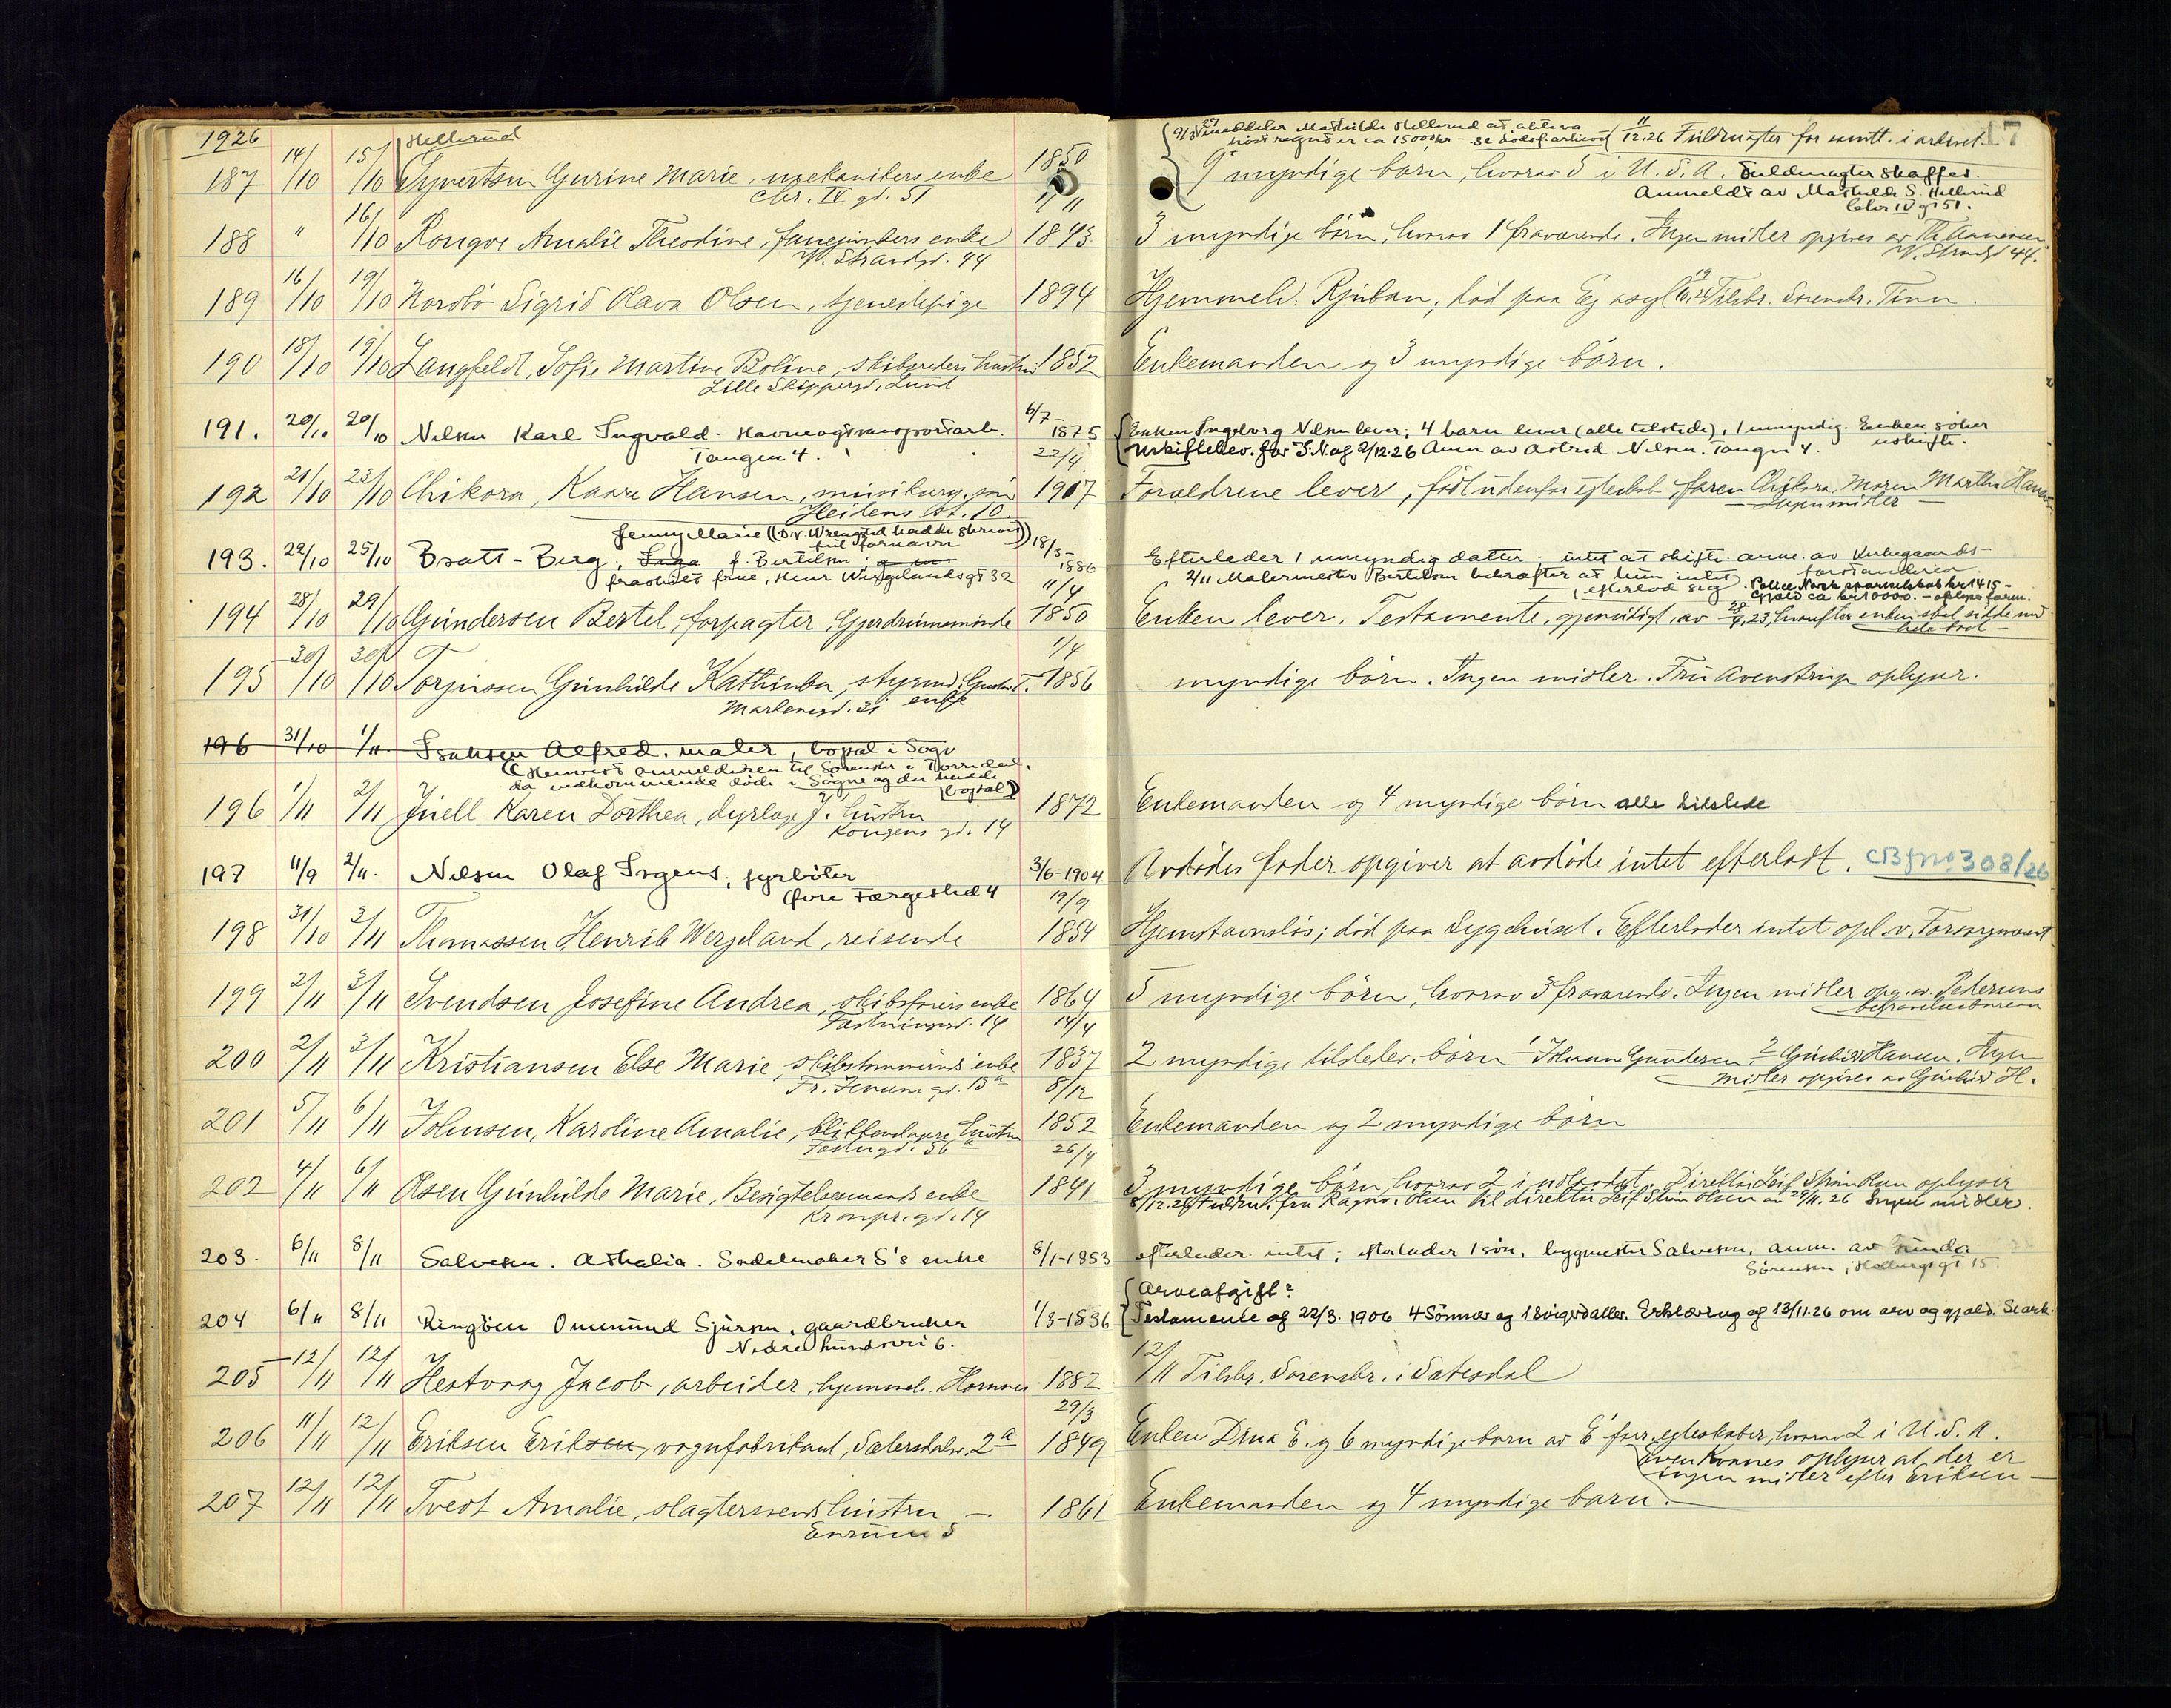 1926
17
Hellerud
187 14/10 15/10 Syvertsen Gurine Marie, mekanikers enke 1850
Chr. IV gt. 51
9/3 27 meddeler Mathilde Hellerud at aktiva
11/12.26 Fuldmagter for samtl. i arkivet.
9 myndige børn, hvorav 5 i U.S.A. Fuldmagter skaffes.
Anmeldt av Mathilde S. Hellerud
Chr IV gt 51.
188 " 16/10 Amalie Theodine, enke 1843
V. Strandgt. 44
3 myndige børn, hvorav 1 fraværende. Ingen midler opgives av Th.
V. Strandgt 44.
189 16/10 19/10 Nordbö Sigrid Olava Olsen, tjenestepige 1894
Hjemmeh. Rjukan, död paa Eg asyl 19/10.26 Tilskr. Sorenskr. Tinn.
190 18/10 19/10 Langfeldt, Sofie Martine Boline, skibsreders hustru 1852
Lille Skippergt, Lund
Enkemanden og 3 myndige børn.
191. 20/10 20/10 Nilsen Karl Ingvald. Havneogtransportarb. 6/7 1875
Tangen 4.
Enken Ingeborg Nilsen lever, 4 barn lever (alle tilstede), 1 umyndig. Enken søker
uskifte.
Uskiftebev. for I.N. af 2/12.26 Anm av Astrid Nilsen. Tangen 4.
192 21/10 23/10 Chikora, Kaare Hansen, søn 22/4 1907
Heidens gt. 10.
Forældrene lever, født udenfor egteskab, faren Chikora, Moren Martha
— Ingen midler —
Jenny Marie ((O.V. Wrengsted hadde skrevet
feil fornavn))
193. 22/10 25/10 Bratt-Berg, Inga f. Bertilsen, 18/5-1886
fraskilt frue, Henr Wergelandsgt 32
Efterlader 1 umyndig datter; intet at skifte anm. av Kirkegaards-
forstanderen
2/11 Malermester Bertilsen bekræfter at hun intet
efterlod sig.
194 28/10 29/10 Gundersen Bertel, forpagter, 11/4 1850
Police Norsk sparselskab kr 1415-
Gjæld ca kr 10000. - oplyses form.
Enken lever. Testamente, gjensidigt, av 28/4.23, hvorefter enken skal sidde med
hele boet —
195 30/10 30/10 Torjussen Gunhilde Kathinka, styrmd. Gustav T. 1/4 1856
Markensgt. 31 enke
myndige børn. Ingen midler. Fru Avenstrup oplyser.
196 31/10 1/11. Isaksen Alfred. maler, bopæl i Søgn
(Henvist anmelderen til Sorenskr i Torridal,
da vedkommende døde i Søgne og der hadde
bopæl)
196 1/11 2/11 Juell Karen Dorthea, dyrlæge J. hustru 1872
Kongens gt. 14
Enkemanden og 4 myndige børn alle tilstede
197 11/9 2/11. Nilsen Olaf Irgens, fyrbøter 3/6-1904.
Øvre Færgested 4
Avdødes fader opgiver at avdöde intet efterlodt. CB jno 308/26
198 31/10 3/11 Thomassen Henrik Wergeland, reisende 19/9 1854
Hjemstavnsløs; död paa Sygehuset. Efterlader intet opl. v. Forsorgsvæsent
199 2/11 3/11 Svendsen Josefine Andrea, skibsførers enke 1864
Fæstningsgt. 14
5 myndige børn, hvorav 3 fraværende. Ingen midler opg. av Pedersens
begravelsesbureau
200 2/11 3/11 Kristiansen Else Marie, skibstømmermds enke 14/4 1837
Tr. gt. 13a
2 myndige tilstedev. børn 1 Johanne Gundersen 2 Gunhild Hansen. Ingen
midler opgives av Gunhild H.
201 5/11 6/11 Johnsen, Karoline Amalie, blikkenslagers hustru 8/12 1852
Fæstngt. 36a
Enkemanden og 2 myndige børn
202 4/11 6/11 Olsen Gunhilde Marie, Besigtelsesmands enke 26/4 1841
Kronpr. gt. 14
3 myndige børn hvorav 2 i udlandet. Direktør Leif Strøm Olsen oplyser
8/12.26 Fuldm. fra Ragnv. Olsen til direktør Leif Strøm Olsen av 29/11.26 Ingen midler.
203. 6/11 8/11 Salvesen. Athalia. Sadelmaker S's enke 8/1-1853
efterlader intet; efterlader 1 søn, bygmester Salvesen, anm. av Gunda
Sørensen, Holbergsgt 15
204 6/11 8/11 Ringöen Ommund Sjursen, gaardbruker 1/3-1836
Nedre Lundsvei 6.
Arveafgift?
Testamente af 22/3. 1906 4 Sönner og 1 Svigerdatter. Erklæring af 13/11.26 om arv og gjæld. Se ark.
205 12/11 12/11 Hestvaag Jacob, arbeider, hjemmeh. Hornnes 1882
12/11 Tilskr. Sorenskr. i Sætesdal
206 11/11 12/11 Eriksen Eriksen, vognfabrikant, Setersdalsv. 2a 29/3 1849
Enken Dina E. og 6 myndige børn av E' før. egteskaber, hvorav 2 i U.S.A.
Even Konnes oplyser at der er
ingen midler efter Eriksen —
207 12/11 12/11 Tveit Amalie, slagtersvends hustru — 1861
Enrum 5
Enkemanden og 4 myndige børn.